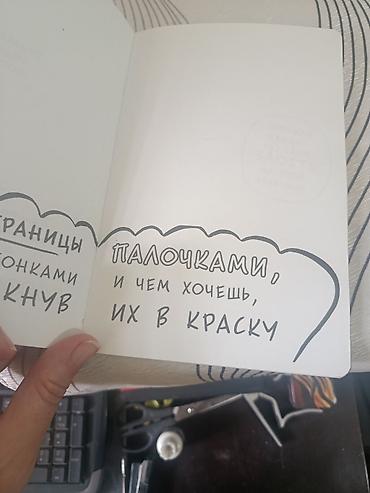 ТРАНИЦЫ
ОНКАМИ
КНУВ
ПАЛОЧКАМИ,
И ЧЕМ ХОЧЕШЬ,
ИХ В КРАСКУ